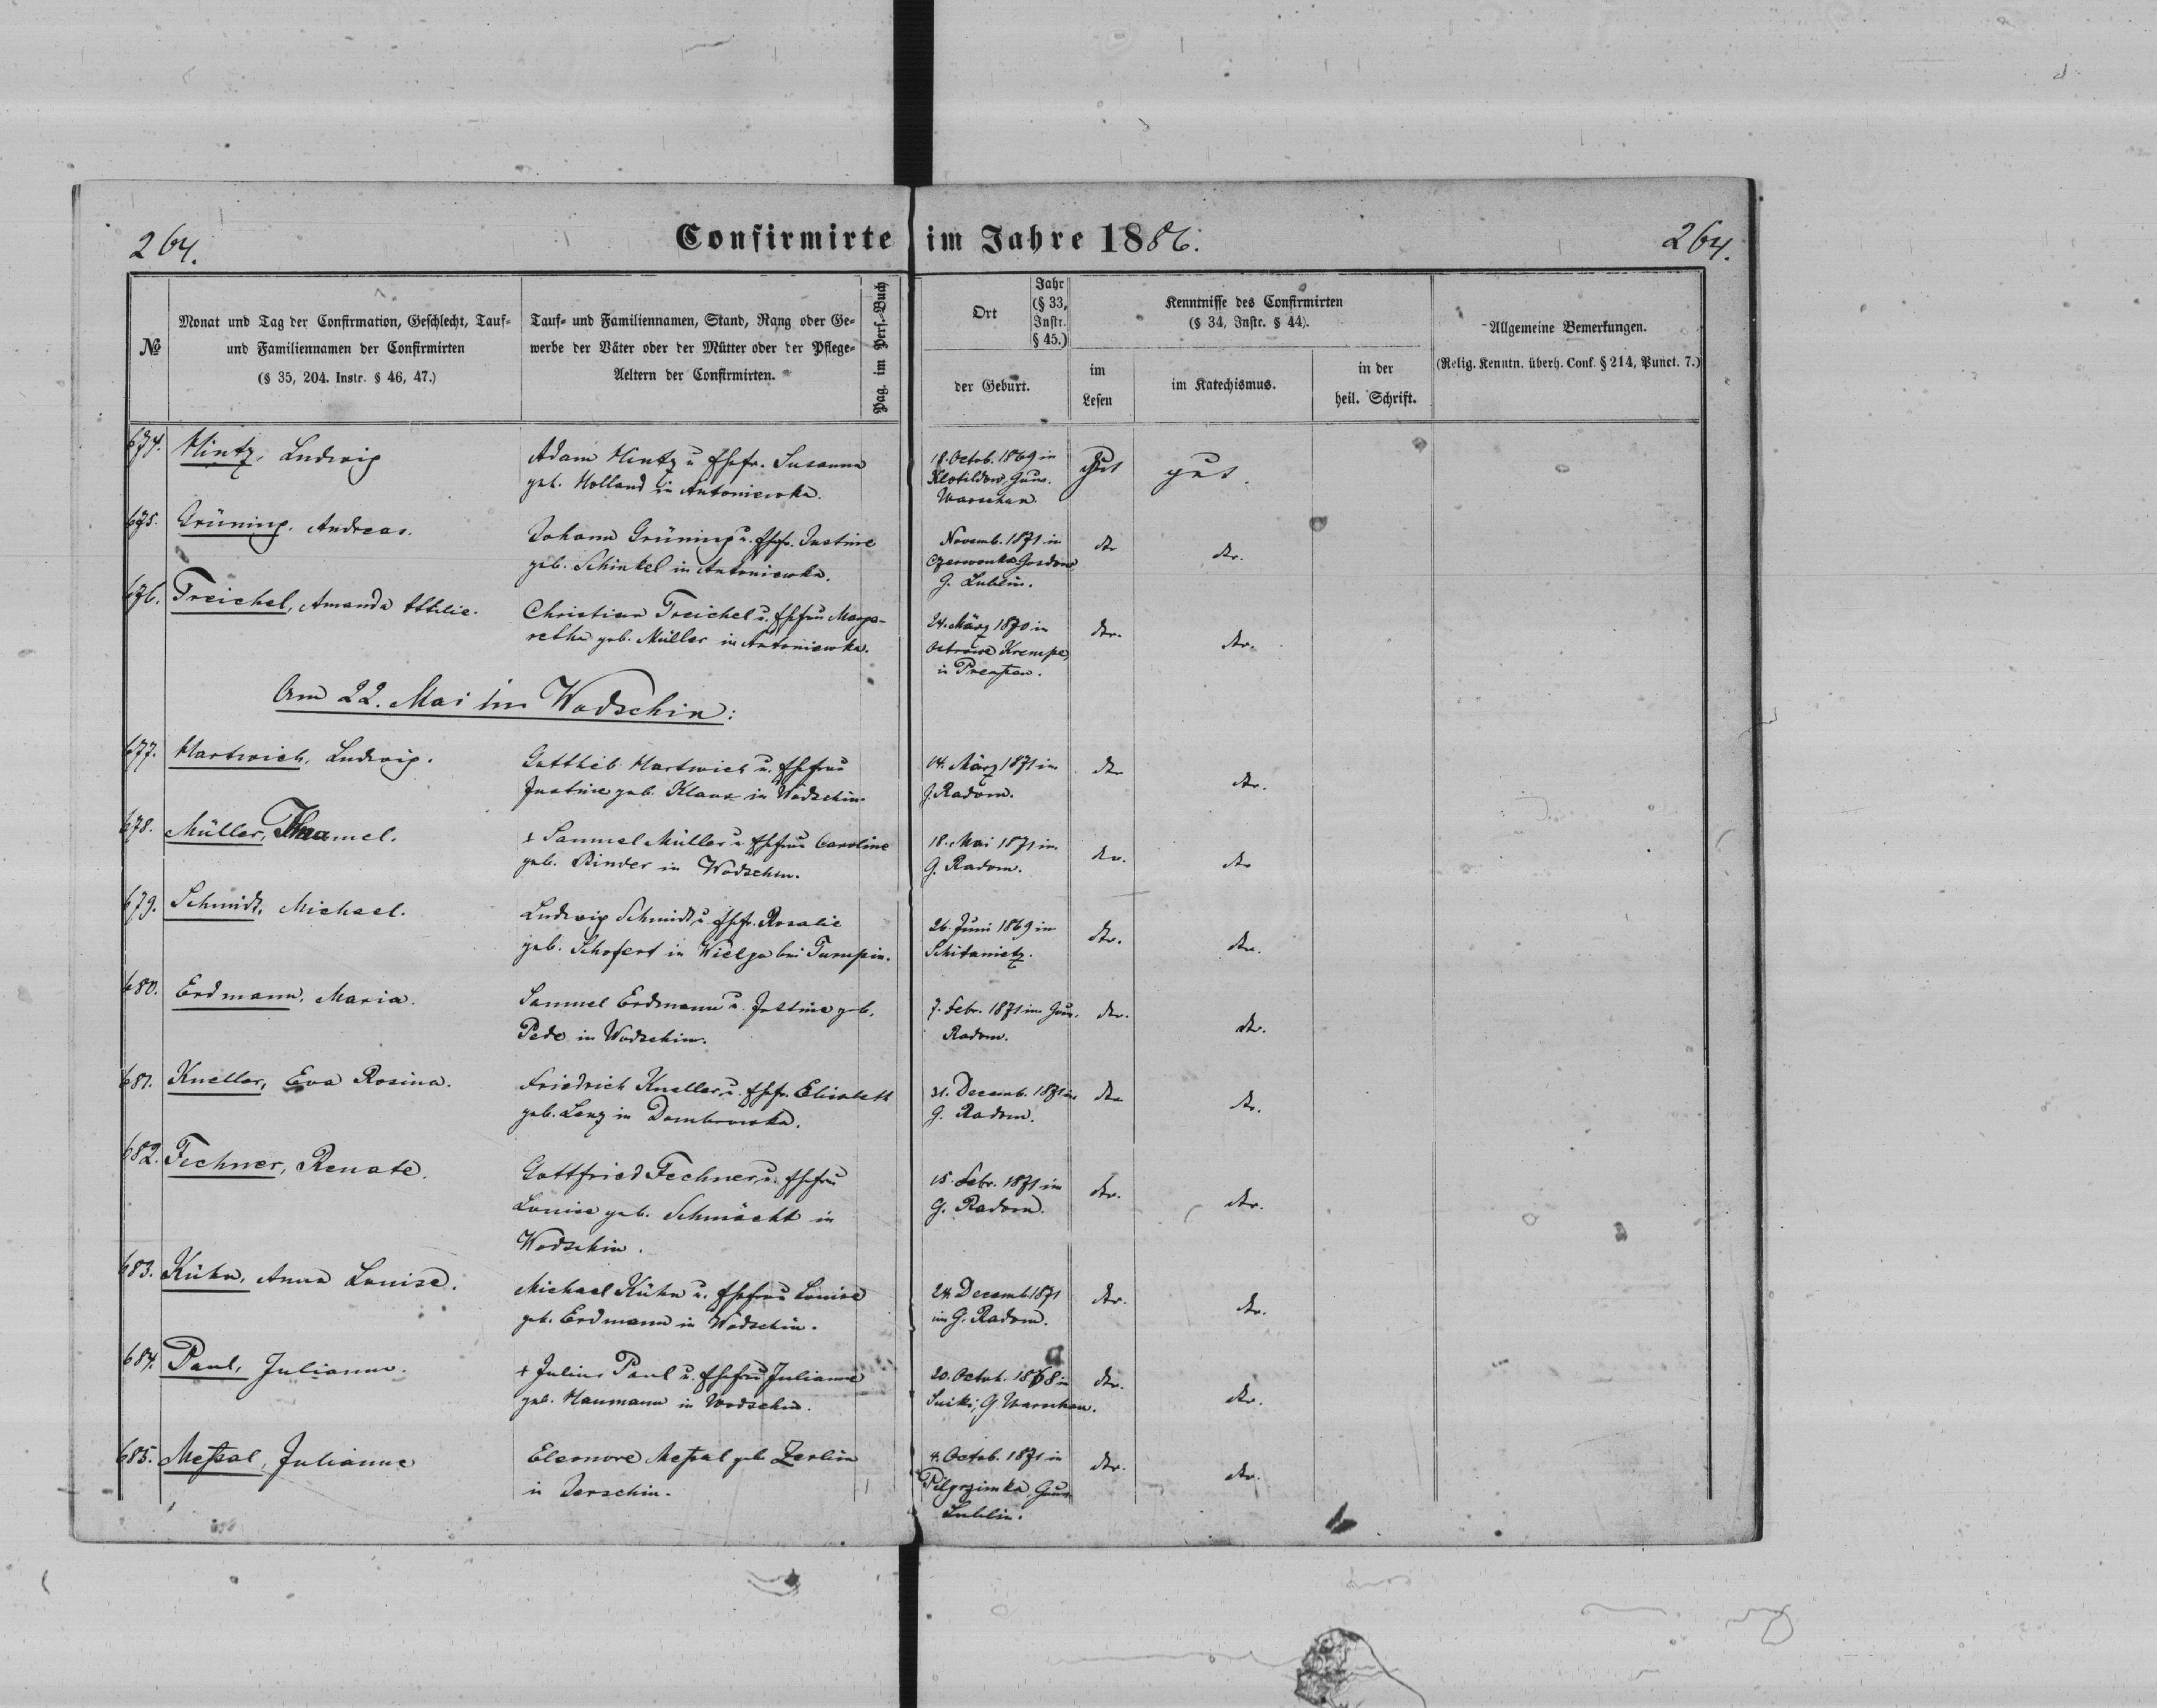 264.
Confirmirte im Jahre 1886.
264.
№
Monat und Tag der Confirmation, Geschlecht, Tauf-
und Familiennamen der Confirmirten
(§ 35, 204. Instr. § 46, 47.)
Tauf- und Familiennamen, Stand, Rang oder Ge-
werbe der Väter oder der Mütter oder der Pflege-
Aeltern der Confirmirten.
Pag. im Pers.-Buch
Ort
Jahr
(§ 33,
Instr.
§ 45.)
der Geburt.
Kenntnisse des Confirmirten
(§ 34, Instr. § 44).
im
Lesen
im Katechismus.
in der
heil. Schrift.
Allgemeine Bemerkungen.
(Relig. Kenntn. überh. Conf. § 214, Punct. 7.)
674. Hintz, Ludwig
Adam Hintz u Ehefr. Susanna
geb. Holland in Antoniewka.
18. Octob. 1869 in
Klotildow, Guv.
Warschau
gut gut.
675. Grüning. Andreas.
Johann Grüning u. Ehefr. Justine
geb. Schinkel in Antoniewka.
Novemb. 1871 in
Czerwonka
G. Lublin.
dto dto.
676. Treichel, Amanda Ottilie.
Christian Treichel u. Ehefrau Marga-
rethe geb. Müller in Antoniewka.
24. März 1870 in
Ostrowo Krempe,
in Preußen.
dto. dto.
Am 22. Mai in Wodschin:
677. Hartwich, Ludwig.
Gottlieb Hartwich u. Ehefrau
Justine geb. Klaus in Wodschin.
14. März 1871 im
G. Radom.
dto dto.
678. Müller,
+ Samuel Müller u Ehefrau Caroline
geb. Binder in Wodschin.
18. Mai 1871 im
G. Radom.
dto. dto
679. Schmidt, Michael.
Ludwig Schmidt u Ehefr. Rosalie
geb. Schofert in Wielga bei Turupin.
26. Juni 1869 in
Schitanietz.
dto. dto.
680. Erdmann, Maria.
Samuel Erdmann u. Justine geb.
Pede in Wodschin.
7. Febr. 1871 im Guv.
Radom.
dto. dto.
681. Kneller, Eva Rosina.
Friedrich Kneller u. Ehefr. Elisabeth
geb. Lenz in Dombrowka.
31. Decemb. 1871 im
G. Radom.
dto dto.
682. Fechner, Renate.
Gottfried Fechner u. Ehefrau
Louise geb. Schmächt in
Wodschin.
15. Febr. 1871 im
G. Radom.
dto. dto.
683. Kühn, Anna Louise.
Michael Kühn u. Ehefrau Louise
geb. Erdmann in Wodschin.
24. Decemb 1871
im G. Radom.
dto. dto.
684. Paul, Julianne.
+ Julius Paul u. Ehefrau Julianne
geb. Haumann in Wodschin.
20. Octob. 1868 in
G Warschau.
dto. dto.
685. Meßal, Julianne
Eleonore Meßal geb Zerlin
in Jerschin.
4. Octob. 1871 in
Pilgrzimka, Guv.
Lublin.
dto. dto.